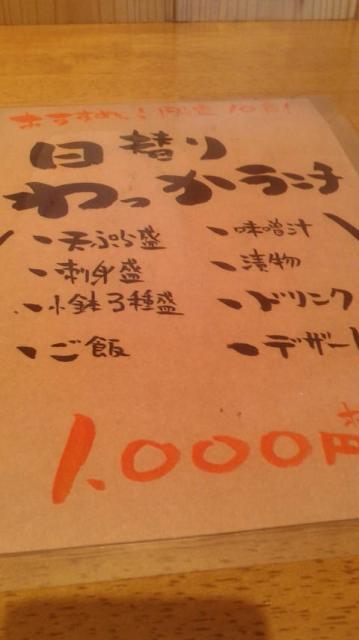 おすすめ！限定10食！
日替り
わっかランチ
、天ぷら盛
、刺身盛
、小鉢3種盛
、ご飯
、味噌汁
、漬物
、ドリンク
、デザート
1,000円